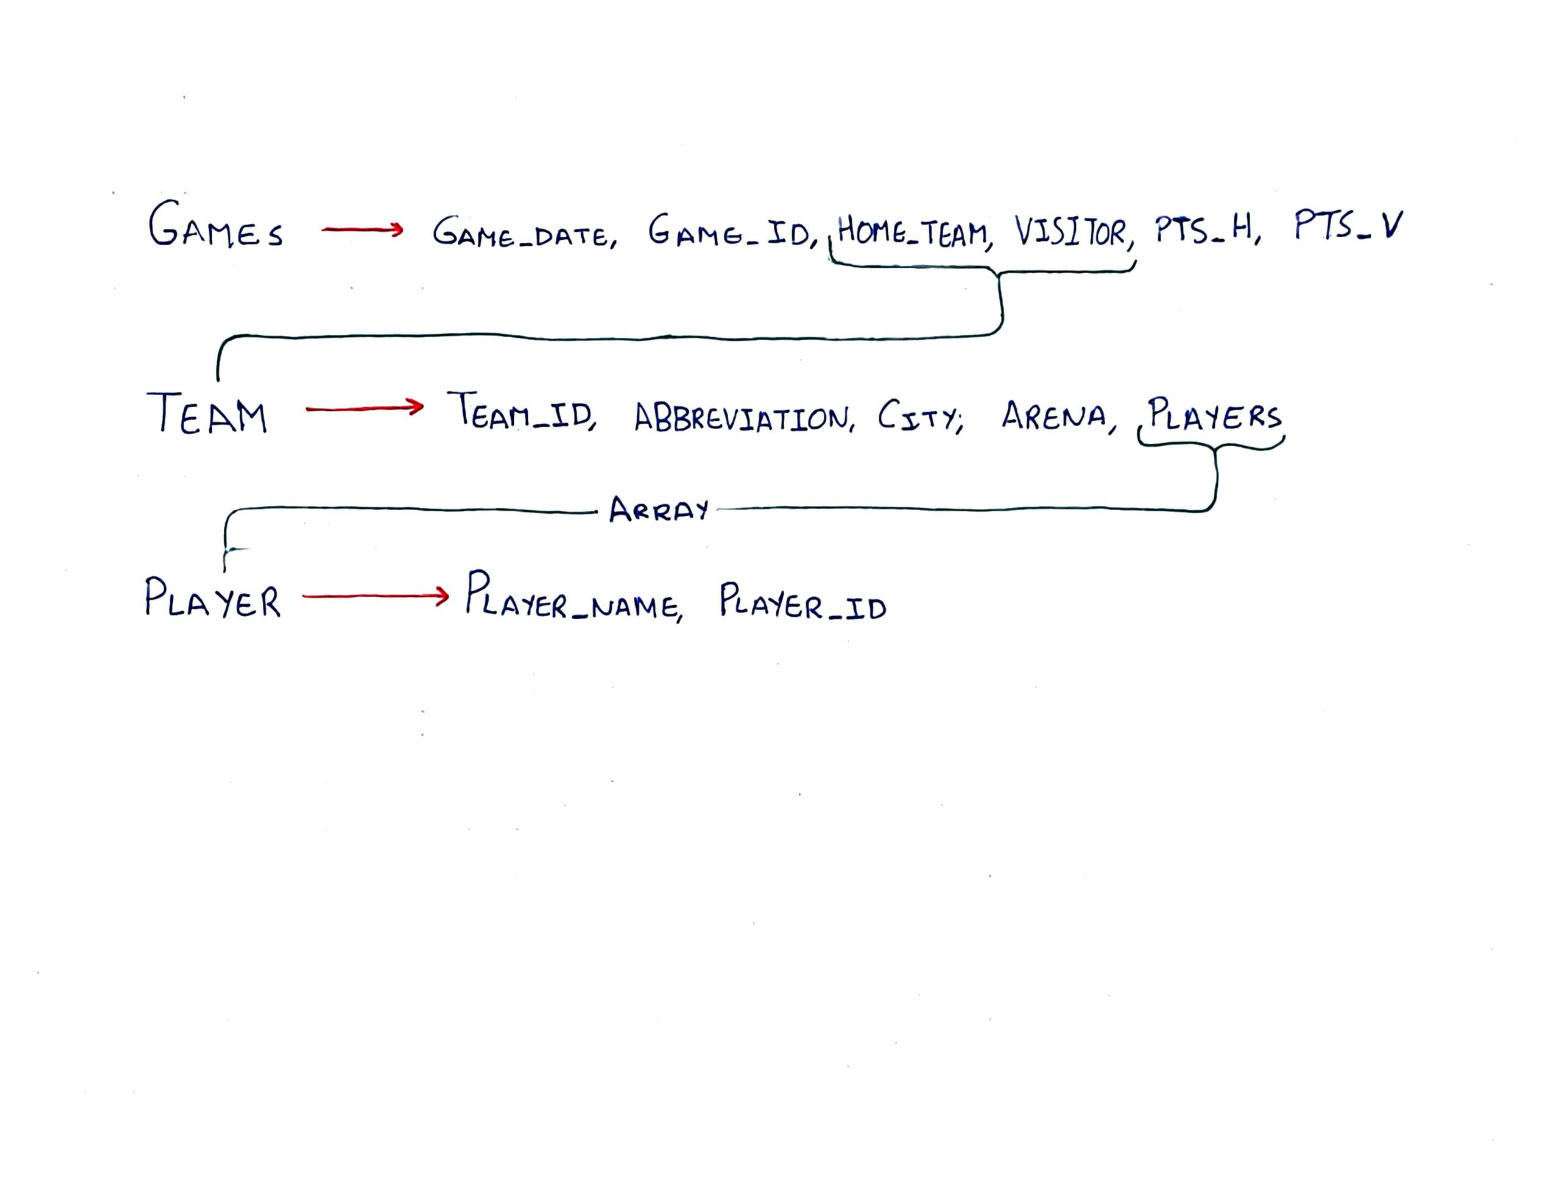 GAMES → GAME_DATE, GAME_ID, HOME_TEAM, VISITOR, PTS_H, PTS_V
TEAM → TEAM_ID, ABBREVIATION, CITY, ARENA, PLAYERS
ARRAY
PLAYER → PLAYER_NAME, PLAYER_ID